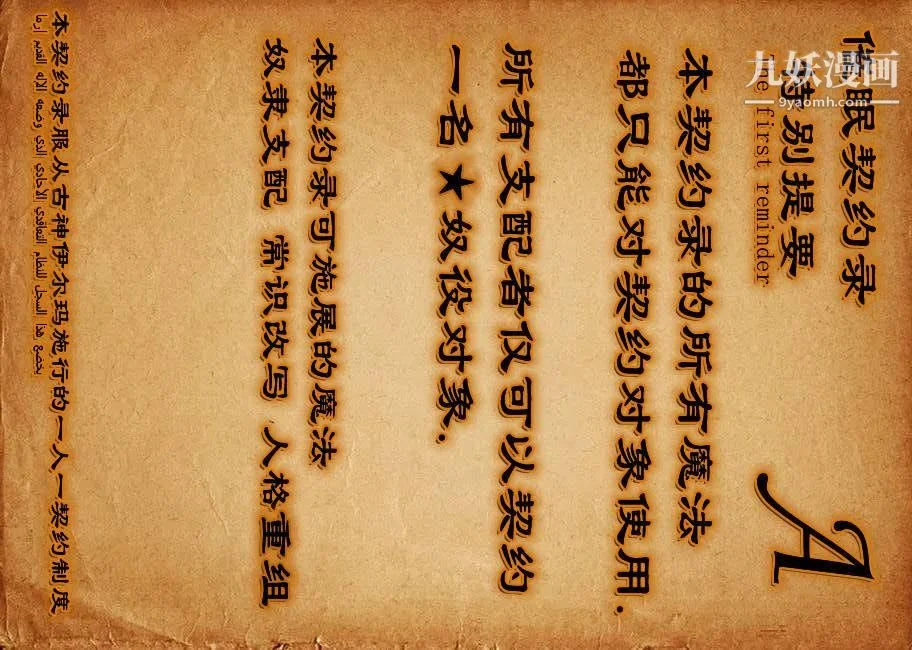 催眠契约录
特别提要
The first reminder
A
本契约录的所有魔法
都只能对契约对象使用.
所有支配者仅可以契约
一名★奴役对象.
本契约录可施展的魔法
奴隶支配 常识改写 人格重组
本契约录服从古神伊尔玛施行的一人一契约制度
يخضع هذا السجل للنظام التعاقدي الأحادي الذي وضعه الإله القديم إرما
九妖漫画
9yaomh.com